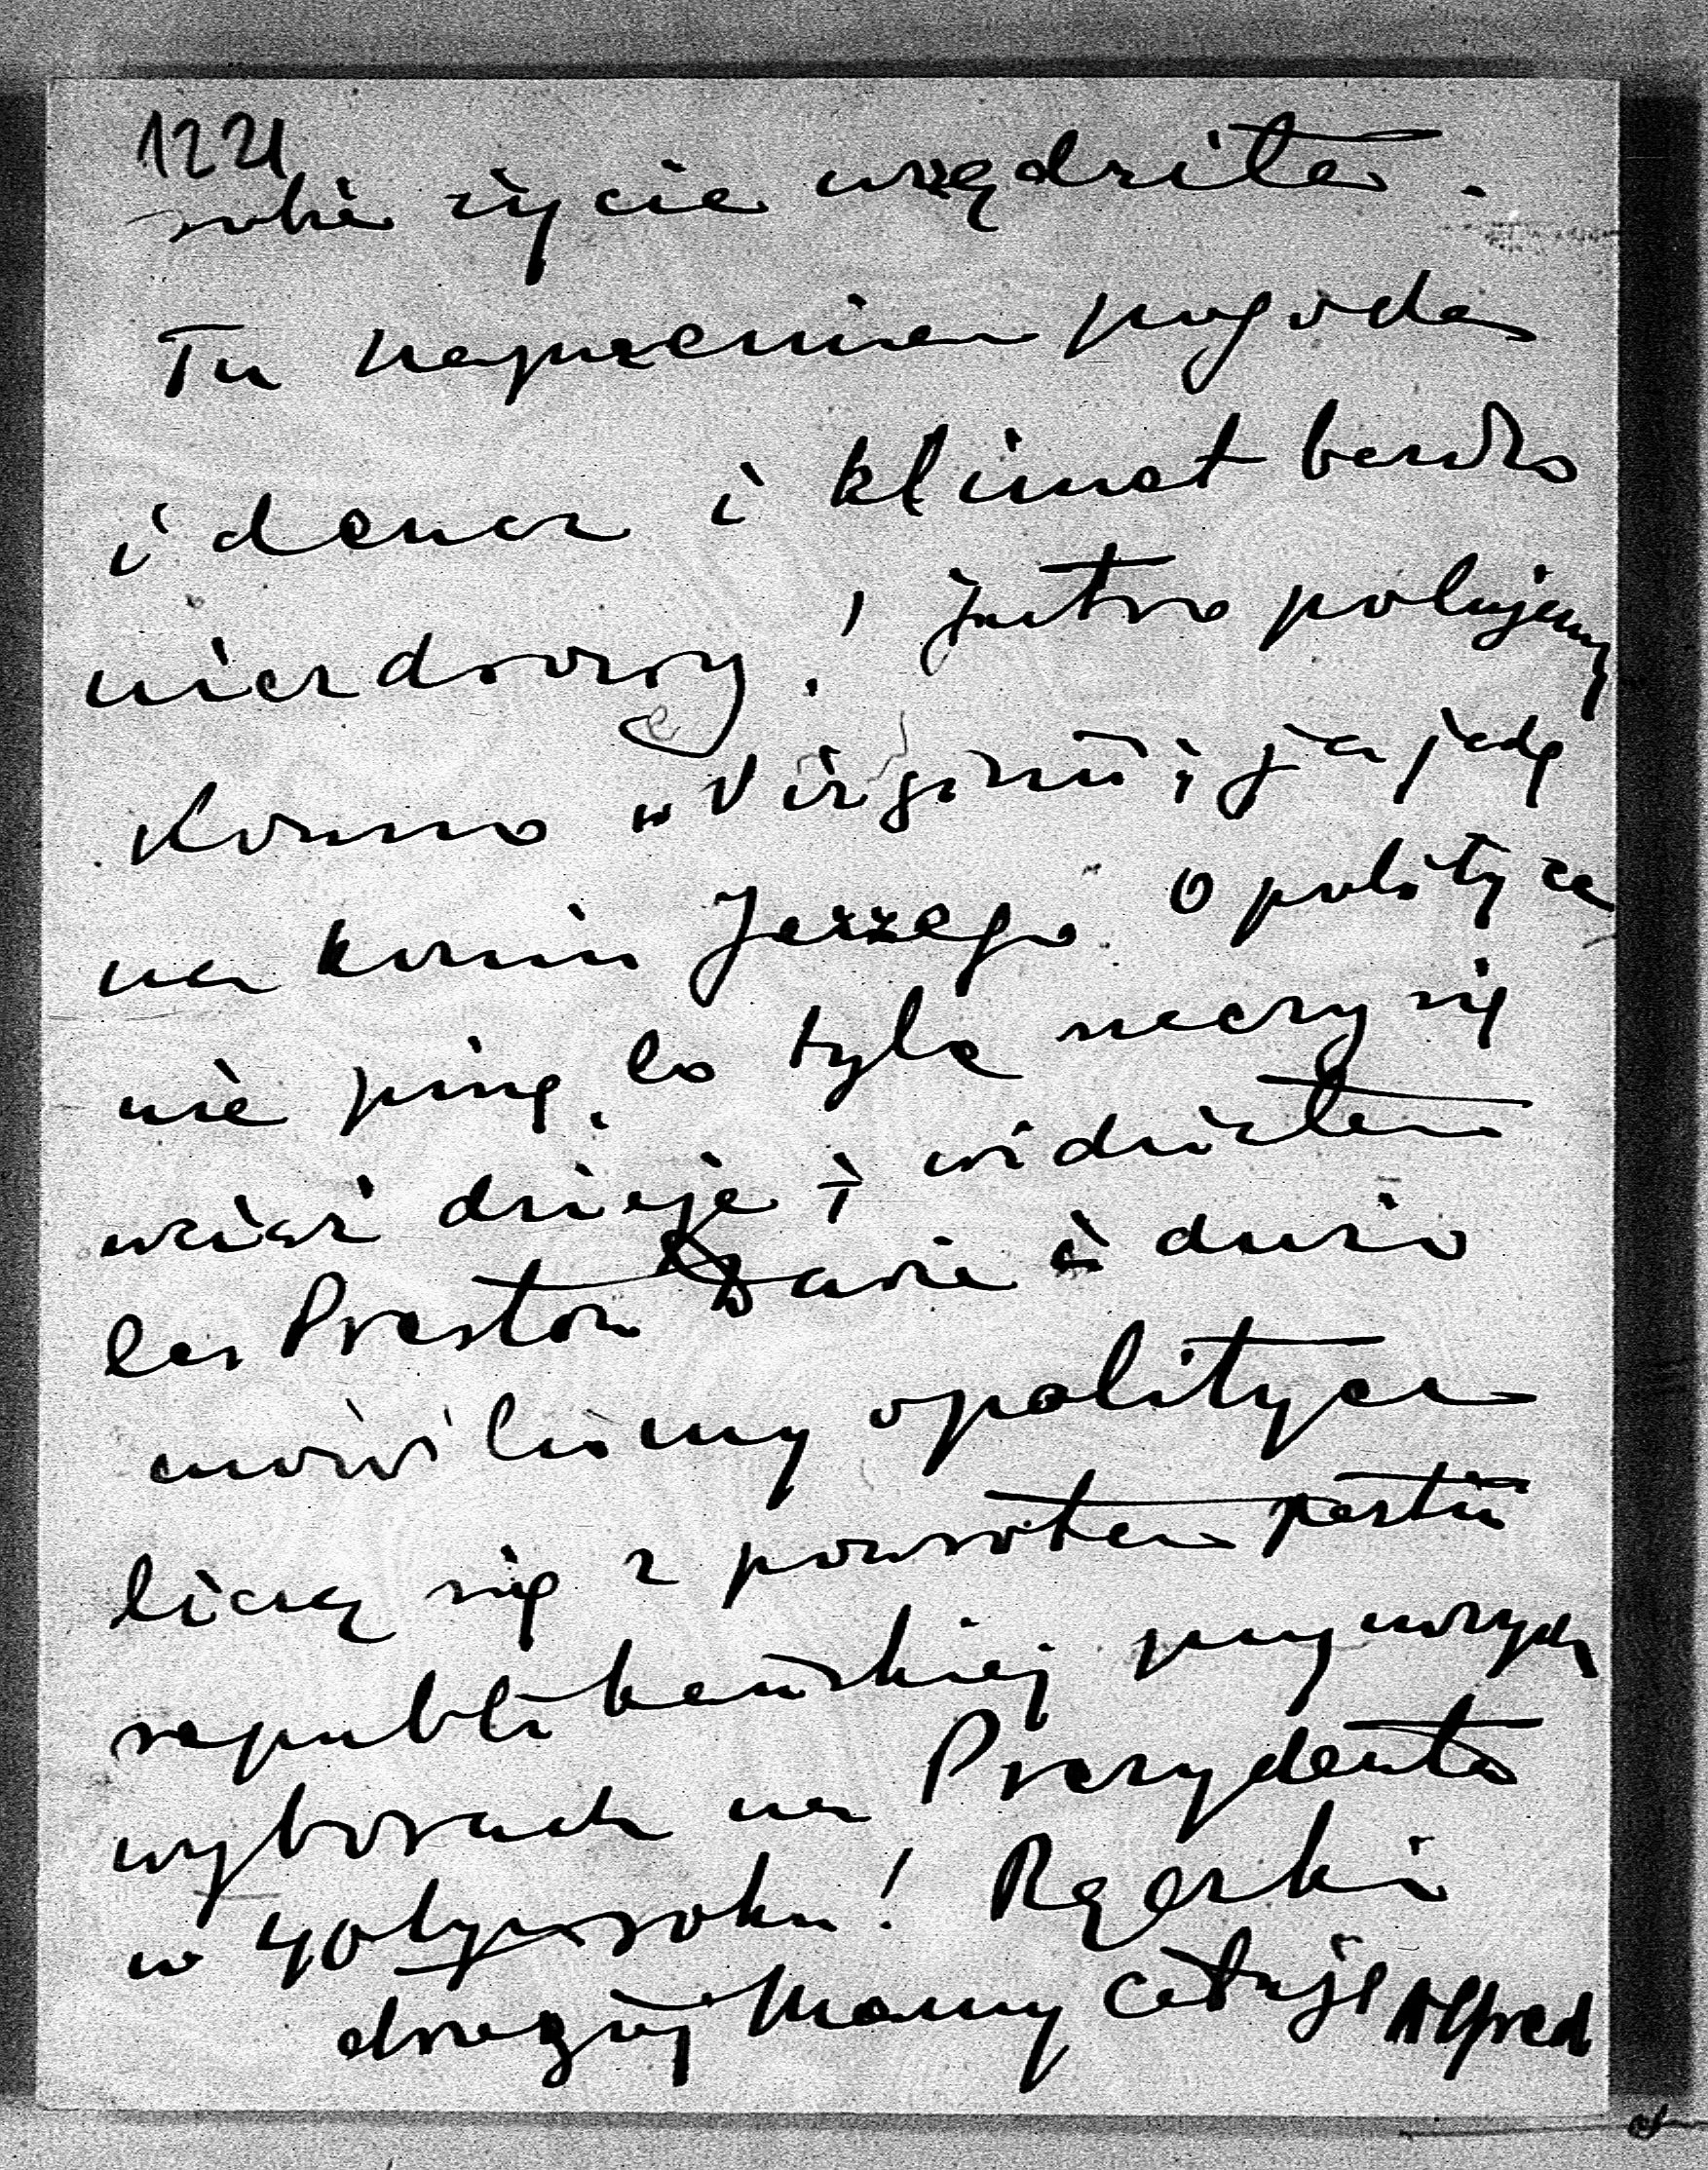 1221
sobie życie urządziła.
Tu naprzemian pogoda
i deszcz i klimat bardzo
niezdrowy! Jutro polujemy
Konno w Virginii; ja jadę
na koniu Jerzego. O polityce
nie piszę, bo tyle rzeczy się
wciąż dzieje i widziałem
Preston Davie i dużo
mówiliśmy o polityce
liczą się z powrotem partii
republikańskiej przy nowych
wyborach na Prezydenta
w 40tym roku! Rączki
drogiej Mamy całuję Alfred